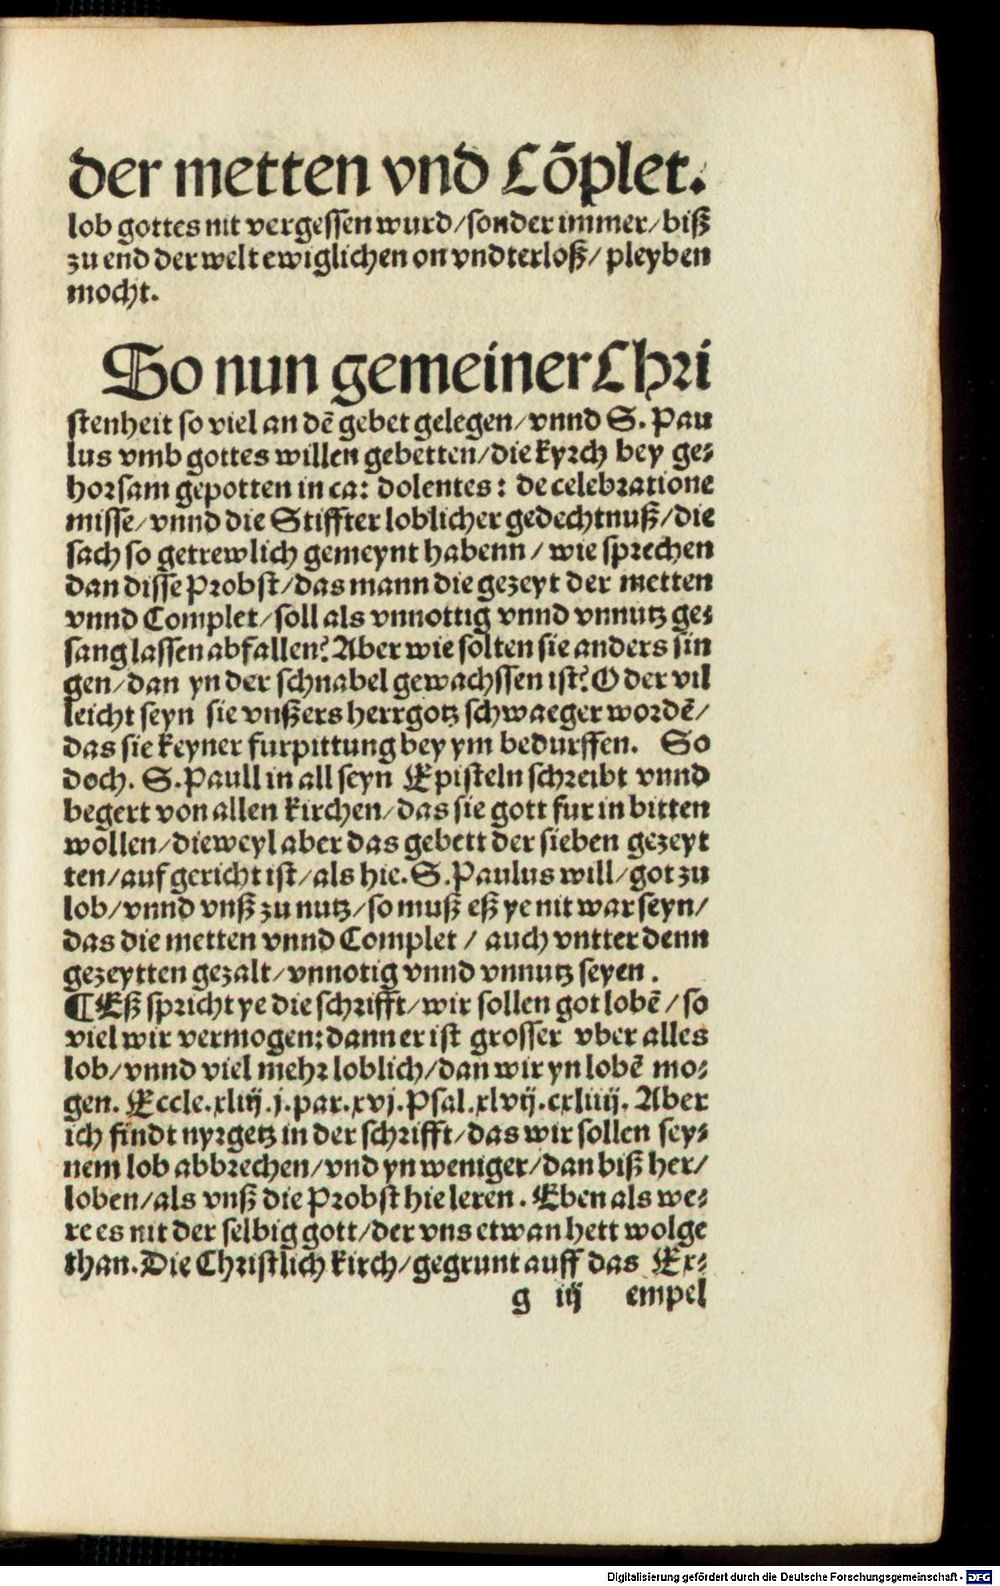 der metten vnd Cõplet.
lob gottes nit vergessen wurd/sonder immer/biß
zu end der welt ewiglichen on vndterloß/ pleyben
mocht.
So nun gemeiner Chri
stenheit so viel an dẽ gebet gelegen/vnnd S. Pau
lus vmb gottes willen gebetten/die kyrch bey ge⸗
horsam gepotten in ca: dolentes: de celebratione
misse/vnnd die Stiffter loblicher gedechtnuß/die
sach so getrewlich gemeynt habenn/ wie sprechen
dan disse Probst/das mann die gezeyt der metten
vnnd Complet/soll als vnnottig vnnd vnnutz ge⸗
sang lassen abfallen? Aber wie solten sie anders sin
gen/dan yn der schnabel gewachssen ist? Oder vil
leicht seyn sie vnßers herrgotz schwaeger wordẽ/
das sie keyner furpittung bey ym bedurffen. So
doch. S. Paull in all seyn Episteln schreibt vnnd
begert von allen kirchen/das sie gott fur in bitten
wollen/dieweyl aber das gebett der sieben gezeyt
ten/auf gericht ist/als hie. S. Paulus will/got zu
lob/vnnd vnß zu nutz/so muß eß ye nit war seyn/
das die metten vnnd Complet/ auch vntter denn
gezeytten gezalt/vnnotig vnnd vnnutz seyen.
¶Eß spricht ye die schrifft/wir sollen got lobẽ/so
viel wir vermogen: dann er ist grosser vber alles
lob/vnnd viel mehr loblich/dan wir yn lobẽ mo⸗
gen. Eccle.xliij.j.par.xvj.Psal.xlvij.cxliiij. Aber
ich findt nyrgetz in der schrifft/das wir sollen sey⸗
nem lob abbrechen/vnd yn weniger/dan biß her/
loben/als vnß die Probst hie leren. Eben als we⸗
re es nit der selbig gott/der vns etwan hett wolge
than. Die Christlich kirch/gegrunt auff das Ex⸗
g iij empel
Digitalisierung gefördert durch die Deutsche Forschungsgemeinschaft - DFG